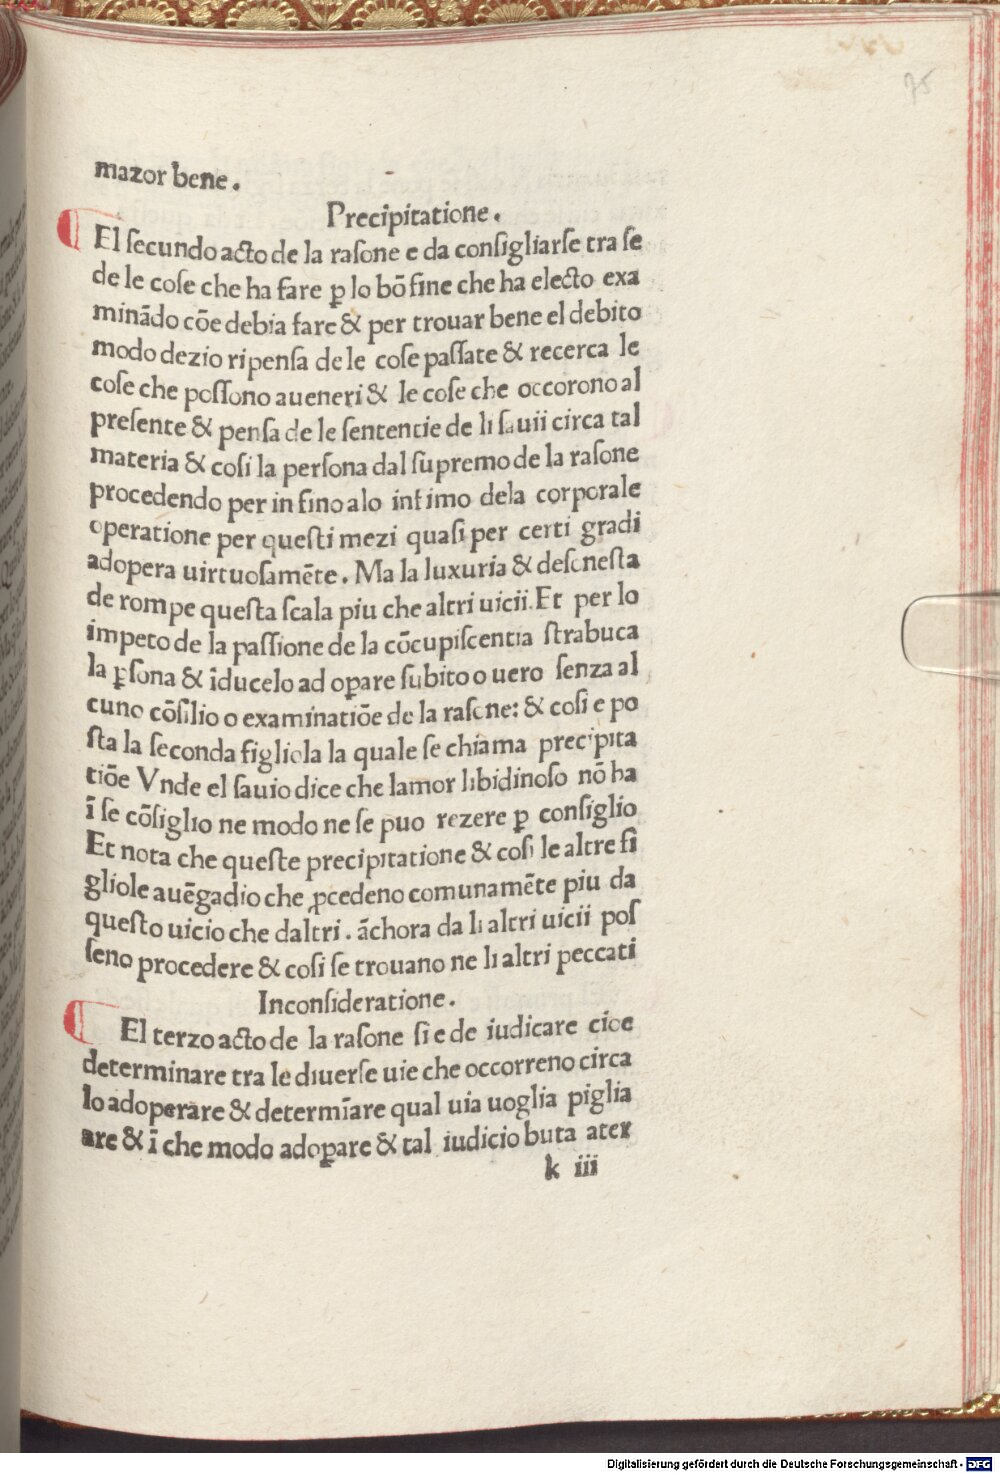 75
mazor bene.
Precipitatione.
El ſecundo acto de la raſone e da conſigliarſe tra ſe
de le coſe che ha fare ꝑ lo bō fine che ha electo exa
minādo cōe debia fare & per trouar bene el debito
modo dezio ripenſa de le coſe paſſate & recerca le
coſe che poſſono aueneri & le coſe che occorono al
preſente & penſa de le ſententie de li ſauii circa tal
materia & coſi la perſona dal ſupremo de la raſone
procedendo per in fino alo infimo dela corporale
operatione per queſti mezi quaſi per certi gradi
adopera uirtuoſamēte. Ma la luxuria & desoneſta
de rompe queſta ſcala piu che altri uicii. Et per lo
impeto de la paſſione de la cōcupiſcentia ſtrabuca
la ꝑſona & īducelo ad oꝑare ſubito o uero ſenza al
cuno cōſilio o examinatiōe de la raſone: & coſi e po
ſta la ſeconda figliola la quale ſe chiama precipita
tiōe Vnde el ſauio dice che lamor libidinoſo nō ha
ī ſe cōſiglio ne modo ne ſe puo rezere ꝑ conſiglio
Et nota che queſte precipitatione & coſi le altre fi
gliole auēgadio che ꝓcedeno comunamēte piu da
queſto uicio che daltri. āchora da li altri uicii poſ
ſeno procedere & coſi ſe trouano ne li altri peccati
Inconſideratione.
El terzo acto de la raſone ſi e de iudicare cioe
determinare tra le diuerſe uie che occorreno circa
lo adoperare & determīare qual uia uoglia piglia
are & ī che modo adoꝑare & tal iudicio buta ater
k iii
Digitalisierung gefördert durch die Deutsche Forschungsgemeinschaft - DFG